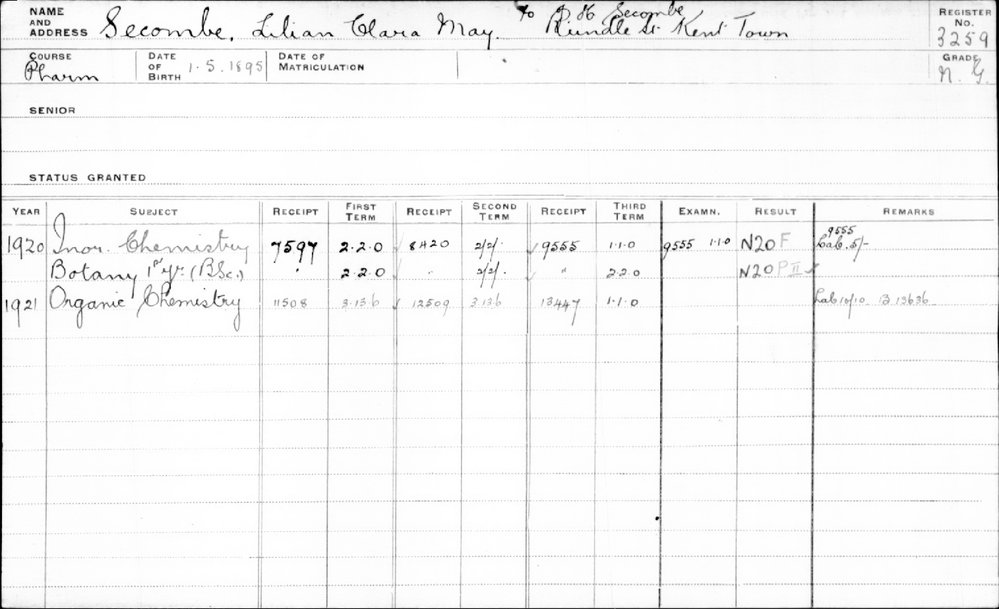 NAME AND ADDRESS Secombe, Lilian Clara May. Secombe Rundle St Kent Town
REGISTER No. 3259
COURSE Pharm
DATE OF BIRTH 1.5.1895
DATE OF MATRICULATION
GRADE N. G.
SENIOR
STATUS GRANTED
YEAR SUBJECT RECEIPT FIRST TERM RECEIPT SECOND TERM RECEIPT THIRD TERM EXAMN. RESULT REMARKS
1920 Inor. Chemistry 7597 2.2.0 8420 2/2/. 9555 1.1.0 9555 1.1.0 N20 F 9555 Lab. 5/-
Botany 1st yr. (B.Sc.) " 2.2.0 " 2/2/. " 2.2.0 N20 P II
1921 Organic Chemistry 11508 3.13.6 12509 3.13.6 13447 1.1.0 Lab 10/10 B. 13636